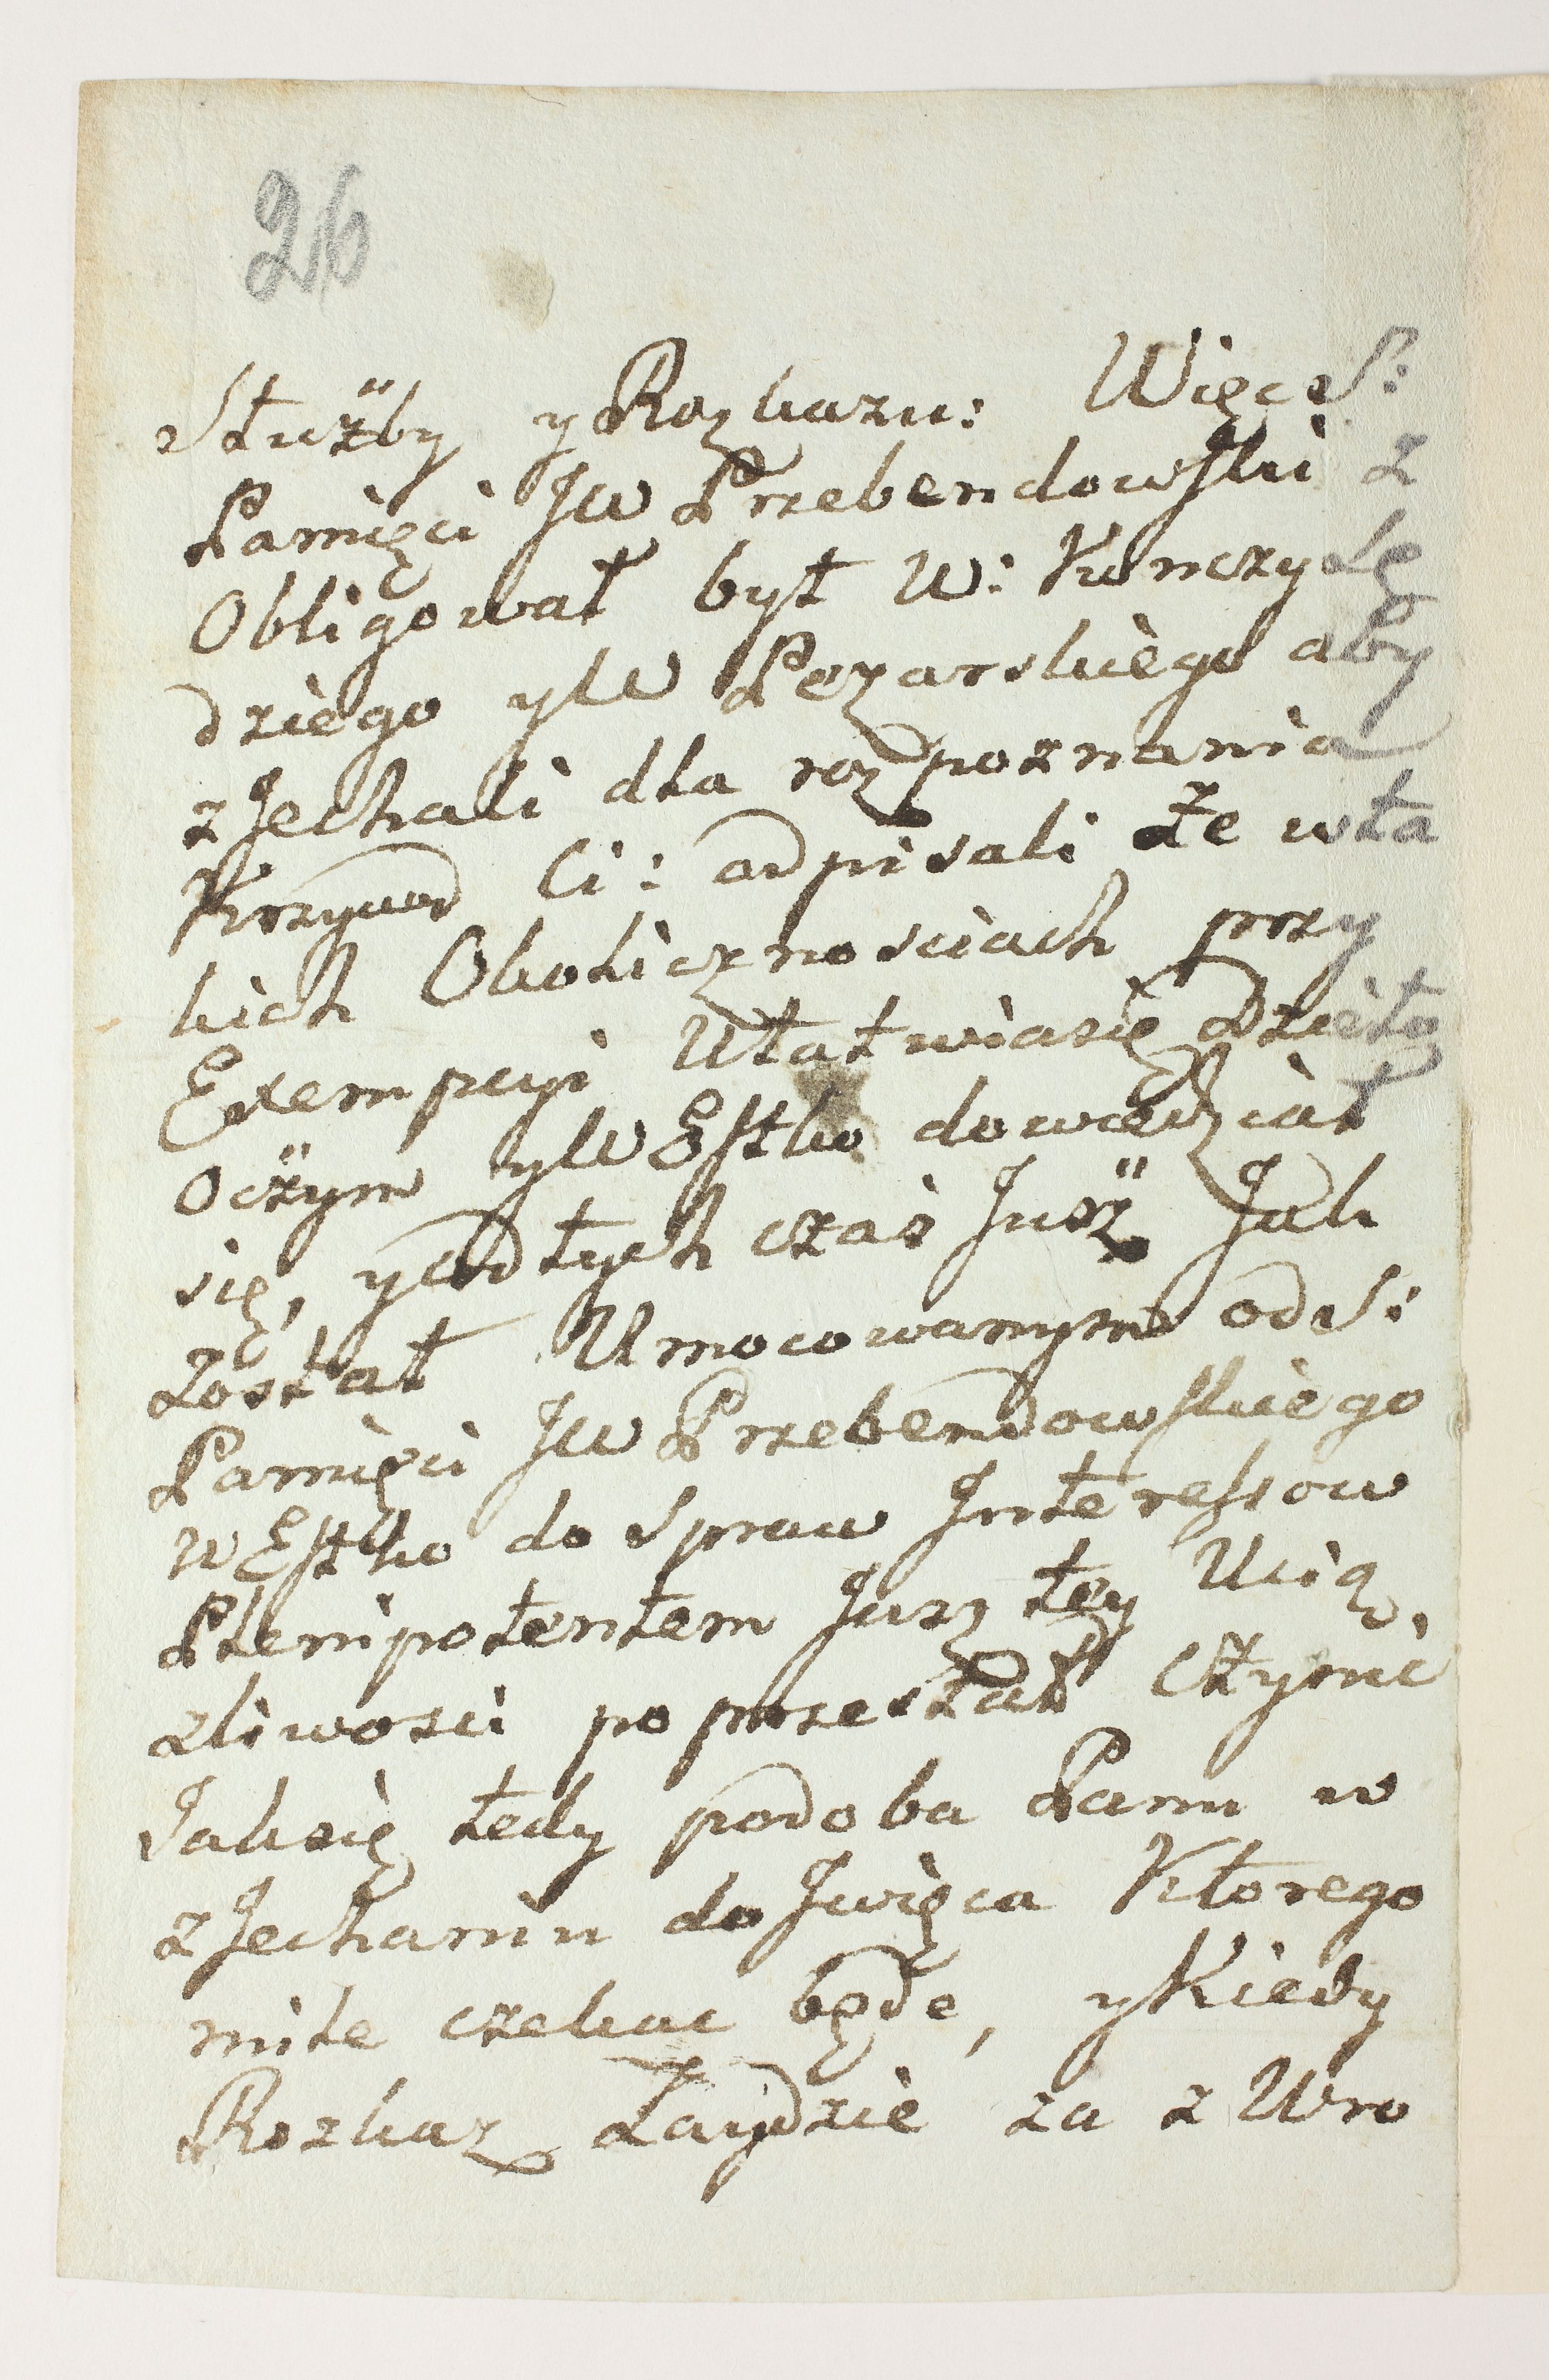 26
Służby y Rozkazu: Więc S:
Pamięci JW Przebendowski z
Obligował był W: Kunczy Sę
dziego y W Pezarskiego aby
zJechali dla rozpoznania
Krzywd Ci: odpisali że wta
kich Okolicznosciach przy
Exempcyi Ułatwiasię Dzieło
Oczym y W Esztko dowiedział
się, yod tych czas Jusz Jak
Został Umocowanym od S:
Pamięci JW Przebendowskiego
W Esztko do Spraw Interessow
Plenipotentem Jusz tey Ucią
zliwosci poprzestał czynić
Jaksię tedy podoba Panu w
zJechaniu do Jwięca Ktorego
mile czekac będe, y Kiedy
Rozkaz Zaydzie za z Wro